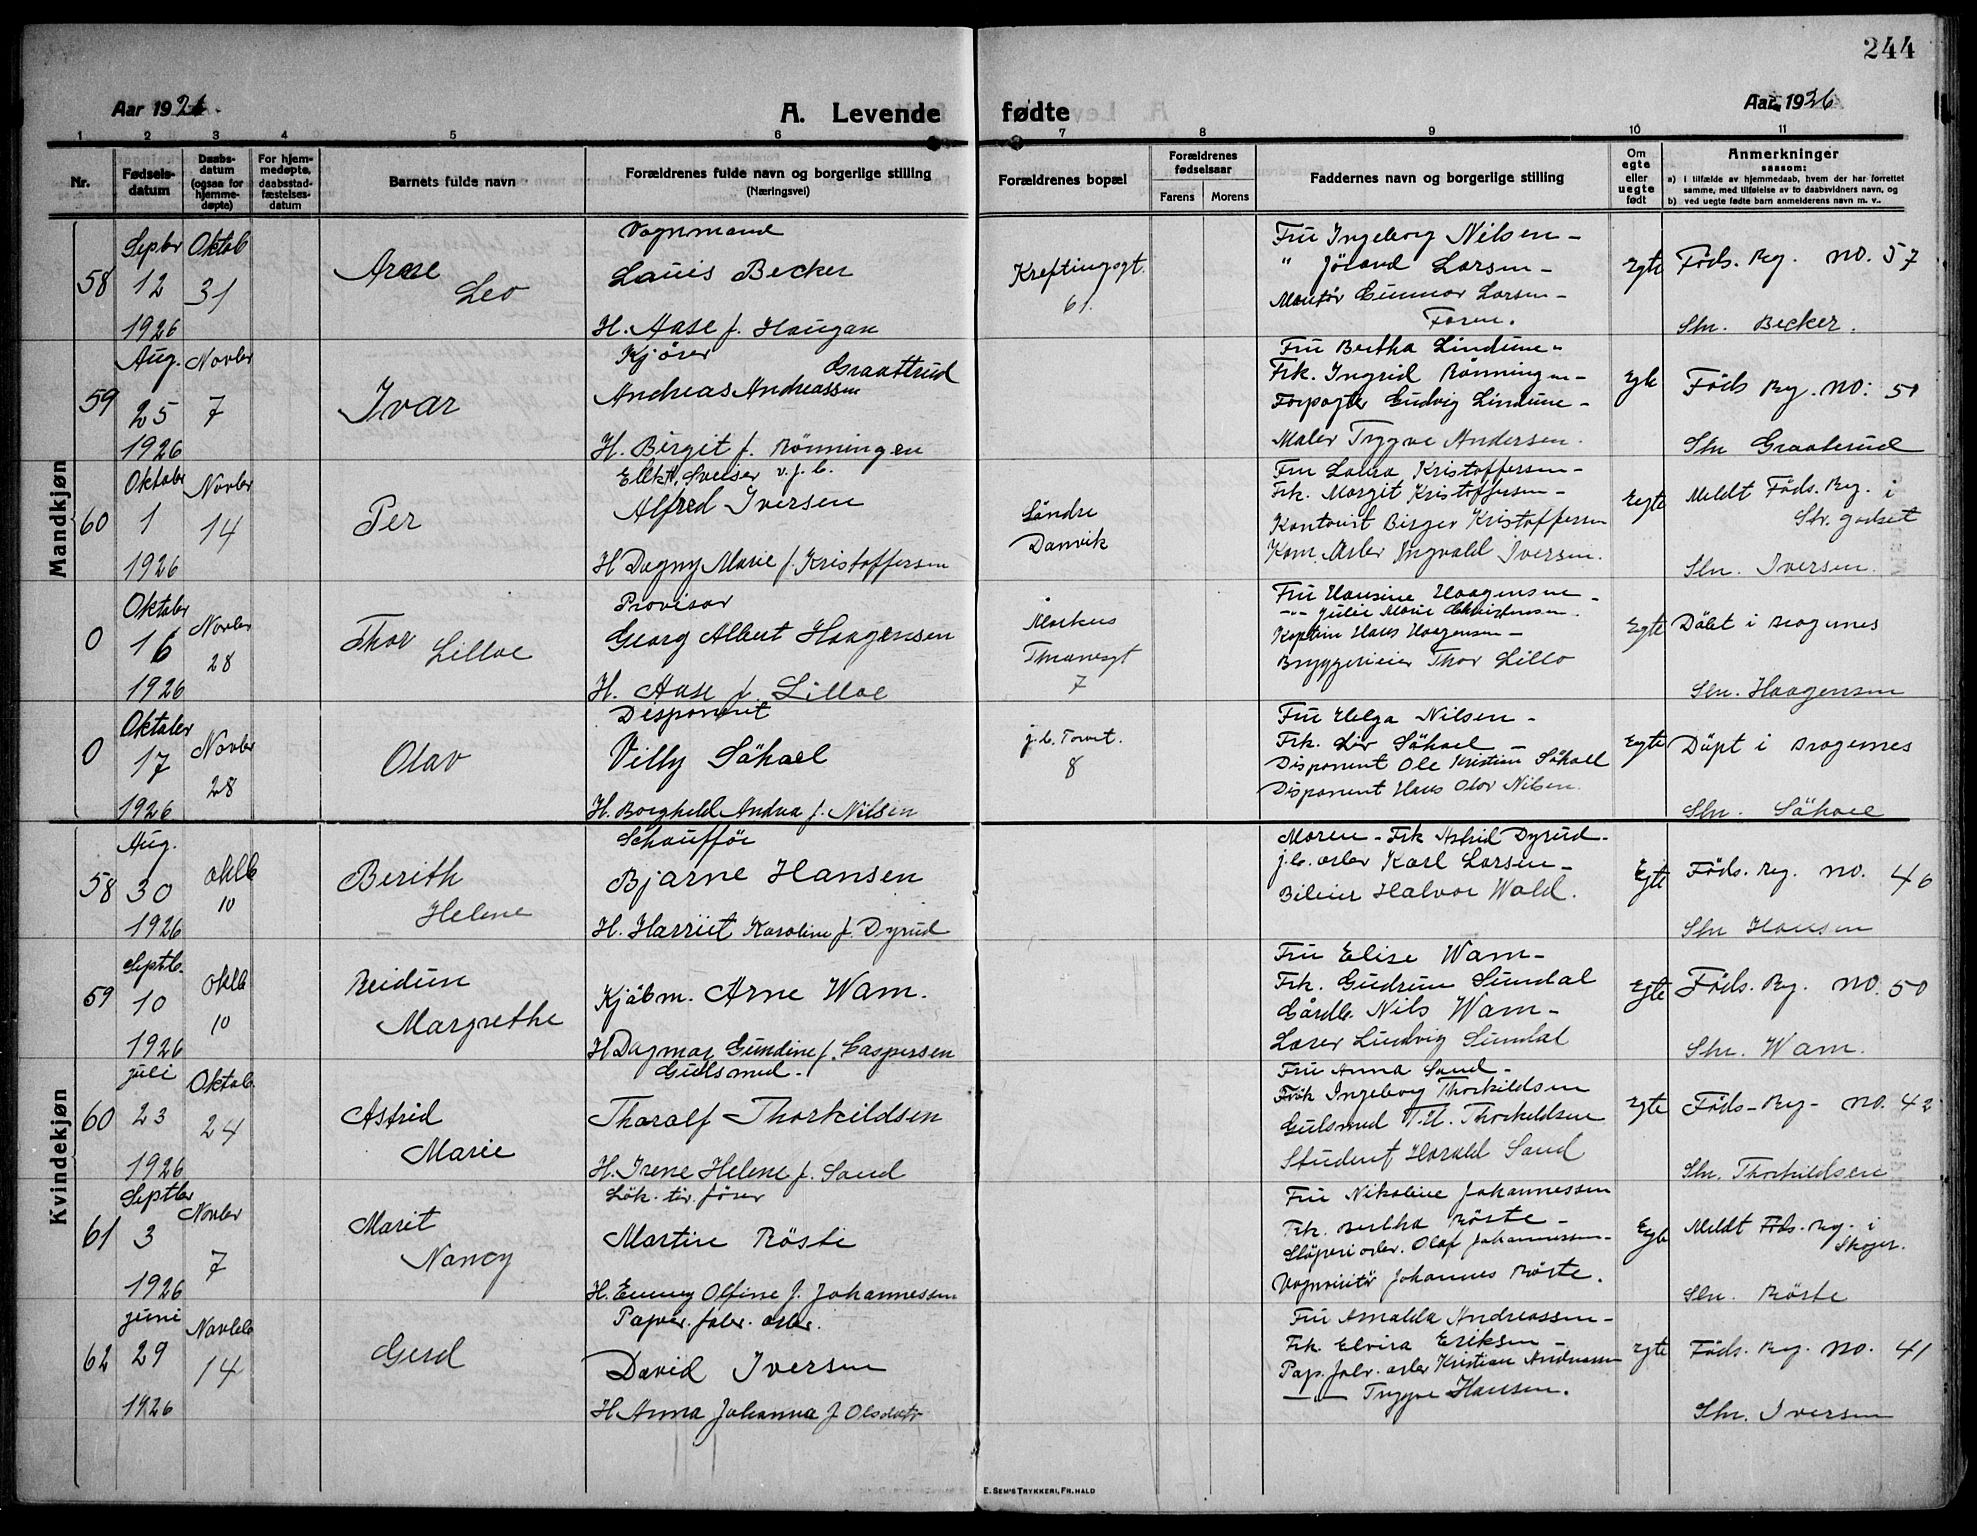 244
Aar 1926.
A. Levende fødte
Aar 1926
1 2 3 4 5 6 7 8 9 10 11
Nr.
Fødsels-
datum
Daabs-
datum
(ogsaa for
hjemme-
døpte)
For hjem-
medøpte,
daabsstad-
fæstelses-
datum
Barnets fulde navn
Forældrenes fulde navn og borgerlige stilling
(Næringsvei)
Forældrenes bopæl
Forældrenes
fødselsaar
Farens Morens
Faddernes navn og borgerlige stilling
Om
egte
eller
uegte
født
Anmerkninger
saasom:
a) i tilfælde av hjemmedaab, hvem der har forrettet
samme, med tilføielse av to daabsvidners navn, og
b) ved uegte fødte barn anmelderens navn m. v..
Mandkjøn
58
Septbr
12
1926
Oktob
31
Arne
Leo
Vognmand
Lauis Becker
H. Aase f. Haugan
Kreftingsgt.
61.
Fru Ingeborg Nilsen -
" Lorsen -
Montør Gunnar Larsen -
Faren.
Egte
Föds. Reg. no. 57
Stn. Becker.
59
Aug.
25
1926
Novbr
7
Ivar
Kjörer
Graattrud
Andreas Andreassen
H. Birgit f. Rönningen
Fru Bertha Lindune -
Frk. Ingrid Rönningen -
Forpagter Ludvig Lindune -
Maler Trygve Andersen.
Egte
Föds Reg. no: 51
Stn Graaterud
60
Oktober
1
1926
Novbr
14
Per
Elektr. Sveiser v. j. b.
Alfred Iversen
H Dagny Marie f. Kristoffersen
Söndre
Danvik
Fru Laura Kristoffersen -
Frk. Margit Kristoffersen -
Kontorist Birger Kristoffersen
Kom. Arbr Ingvald Iversen.
Eegte
Meldt Föds. Reg. i
Str. godset
Stn. Iversen.
0
Oktober
16
1926
Novbr
28
Thor
Lilloe
Provisor
Georg Albert Haagensen
H. Aase f. Lilloe
Markus
Thranesgt
7
Fru Hansine Haagensen -
-"- Julie Marie Christensen.
Kaptein Hans Haagensen -
Bryggerieier Thor Lillo
Egte
Döbt i Bragernes
Stn. Haagensen
0
Oktober
17
1926
Novbr
28
Olav
Disponent
Villy Söhoel
H. Borghild Andrea f. Nilsen
j. b. Torvet.
8
Fru Helga Nilsen -
Frk. Liv Söhoel -
Disponent Ole Kristian Söhoel
Disponent Hans Olav Nilsen.
Eegte
Döpt i Bragernes
Stn. Söhoel
Kvindekjøn
58
Aug.
30
1926
Oktb
10
Berith
Helene
Schaufför
Bjarne Hansen
H. Harriet Karoline f. Dyrud
Moren - Frk Astrid Dyrud -
j.b. arbr Karl Larsen -
Bileier Halvor Wold.
Egte
Föds. Reg. no. 46
Stn Hansen
59
Septb.
10
1926
Oktb
10
Reidun
Margrethe
Kjöbm. Arne Wam.
H Dagmar Gundine f. Caspersen
Fru Elise Wam -
Frk. Gudrun Sundal
Gårdb. Nils Wam -
Lærer Ludvig Sundal
Egte
Föds. Reg. no. 50
Stn. Wam.
60
juli
23
1926
Oktob.
24
Astrid
Marie
Gulsmed.
Tharalf Thorkildsen
H. Irene Helene f. Sand
Fru Anna Sand -
Frök Ingeborg Thorkildsen
Gulsmed T. U. Thorkildsen
Student Harald Sand
Egte
Föds - Reg - no. 42
Stn. Thorkildsen
61
Septbr
3
1926
Novbr
7
Marit
Nancy
Lök. tiv. förer
Martin Röste
H. Emmy Olfine f. Johannessen
Fru Nikoline Johannessen
Frk. Bertha Röste -
Sliperi arbr. Olaf Johannessen -
Vognvisitör Johannes Röste.
Egte
Meldt Föds. Reg. i
Skoger.
Stn. Röste
62
juni
29
1926
Novbb
14
Gerd
Papir. fabr. arbr.
David Iversen
H Anna Johanna f Olsdatr
Fru Amalda Andreassen -
Frk Elvira Eriksen -
Pap. fabr. arbr Kristian Andreassen
-"- Trygve Hansen.
Egte
Föds. Reg. no. 41
Stn. Iversen
E. SEM'S TRYKKERI, FR. HALD